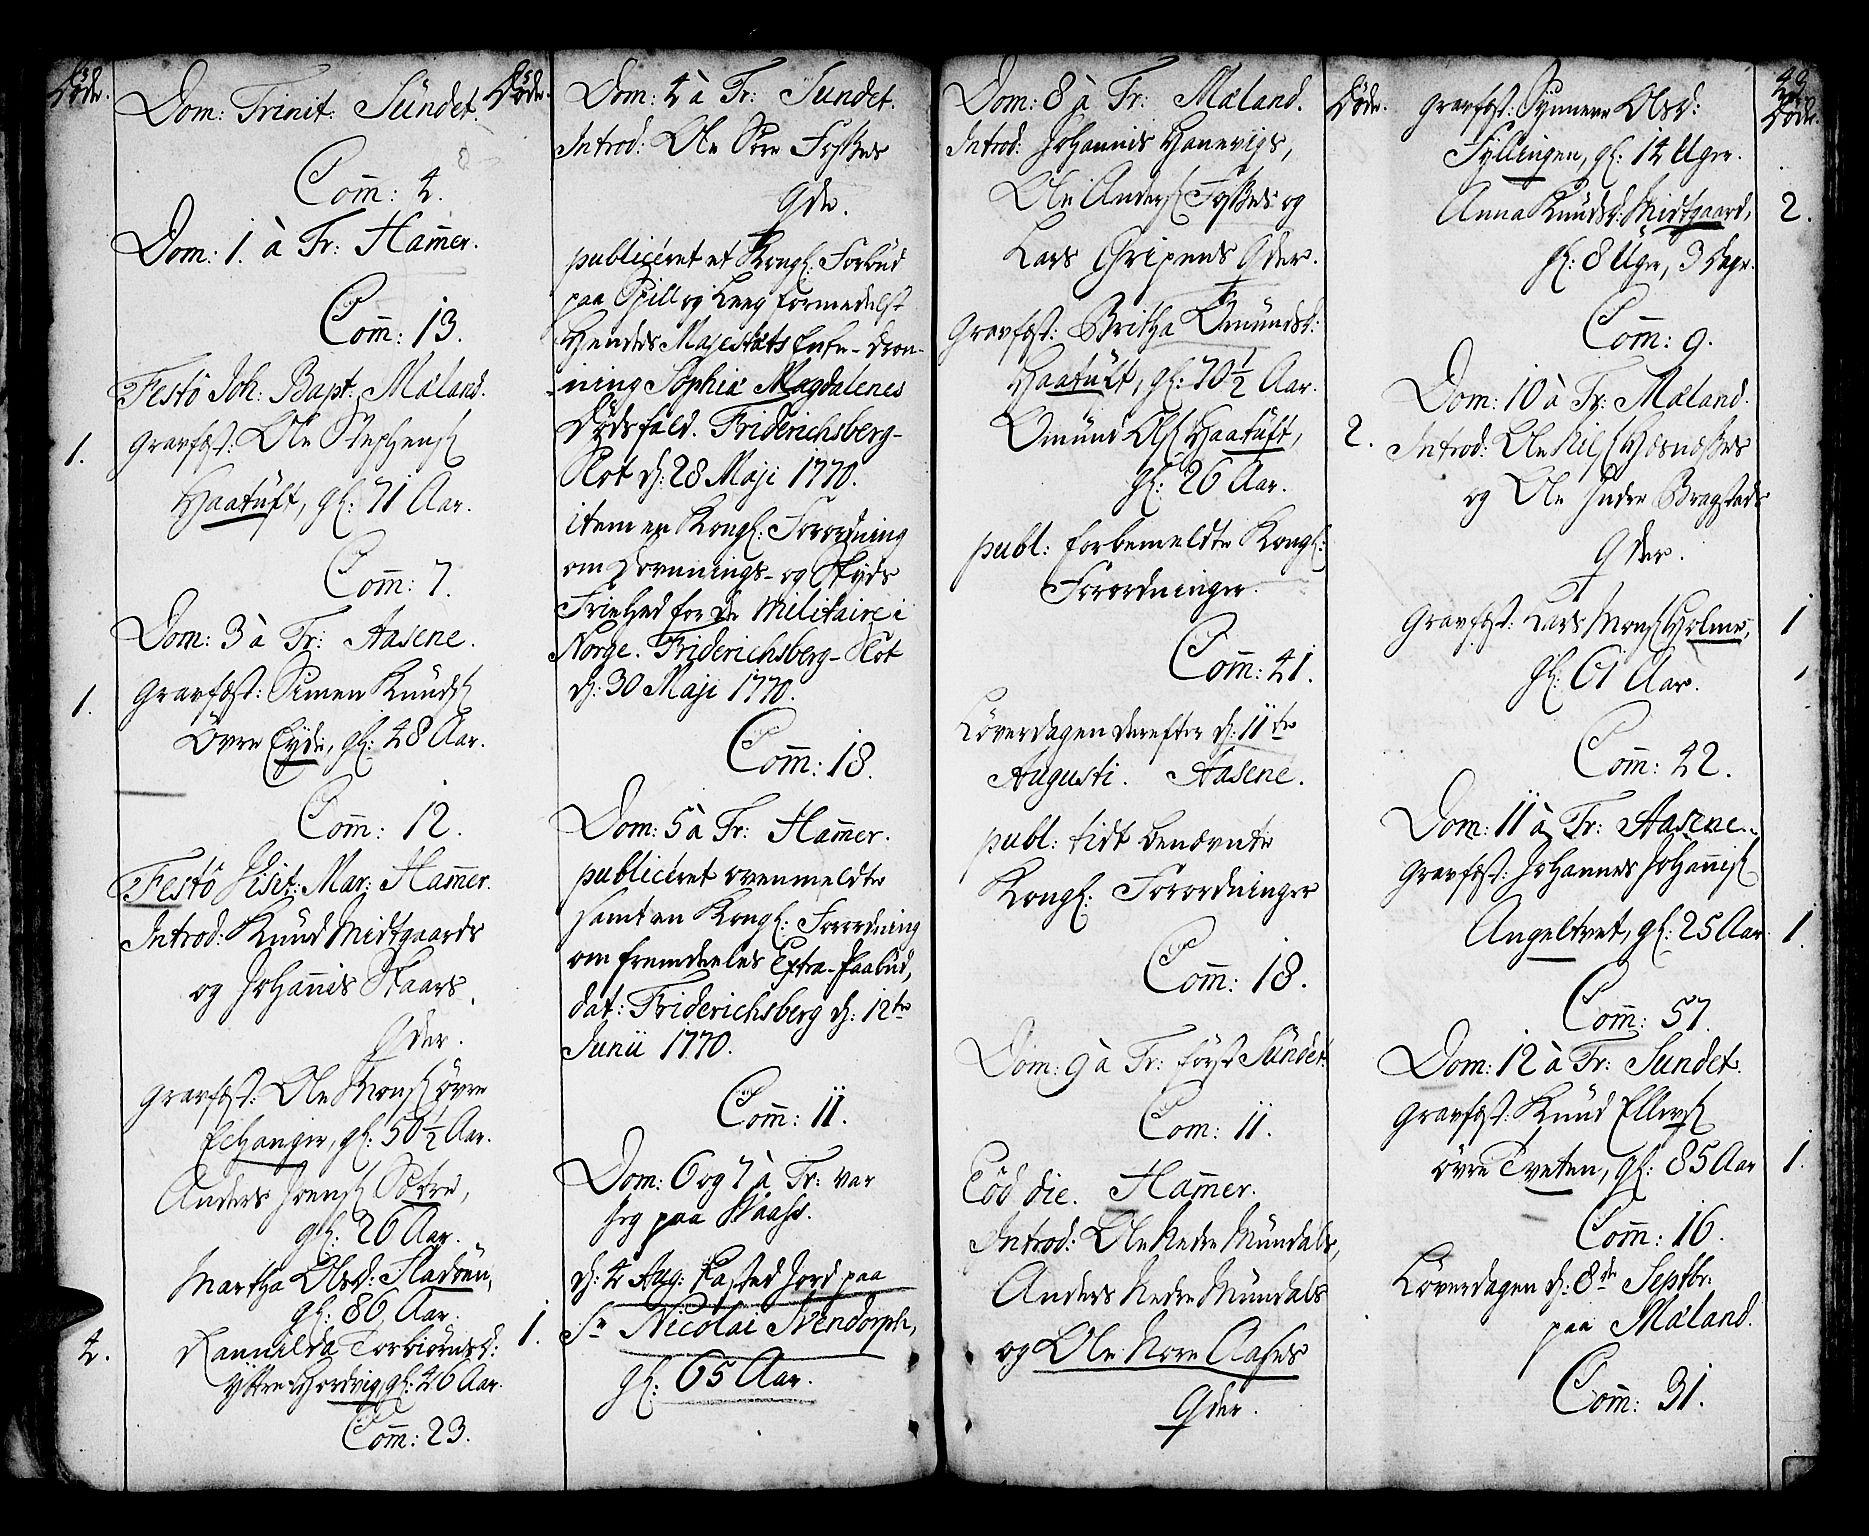 Døde.
Dom: Trinit: Sundet.
Com̄: 4.
Dom: 1. à Tr: Ham̄er.
Com̄: 13.
Festo Joh: Bapt: Mæland.
1.
Gravfæst: Ole Stephens.
Haatuft, gl: 71 Aar.
Com̄: 7.
Dom: 3 à Tr: Aasene.
1.
Gravfæst: Simen Knuds.
Øvre Eyde, gl: 48 Aar.
Com̄: 12.
Festo Visit: Mar: Ham̄er.
Introd: Knud Midtgaards
og Johan̄is Skaars
Qder.
Gravfæst: Ole Mons. øvre
Echanger, gl: 50½ Aar.
Anders Joens. Sætre,
gl: 26 Aar.
Martha Olsd: Fladøen,
gl: 86 Aar.
4.
Rannilda Torbiørnsd:
Yttre Hordvig, gl: 46 Aar.
Com̄: 23.
Døde.
Dom: 4 à Tr: Sundet.
Introd: Ole Store Fosses
Qde.
publiceret et Kongl: Forbud
paa Spill og Leeg formedelst
Hendes Majestæts Enke-Dron-
ning Sophia Magdalenes
Dødsfald. Friderichsberg-
Slot d: 28 Maji 1770.
item en Kongl: Forordning
om Dovnings- og Skyds
Friehed for de Militaire i
Norge. Friderichsberg-Slot
d: 30 Maji 1770.
Com̄: 18.
Dom: 5 à Tr: Ham̄er.
publiceret ovenmeldte
samt en Kongl: Forordning
om fremdeeles Extra-Paabud,
dat: Friderichsberg d: 12te
Junii 1770.
Com̄: 11.
Dom: 6 og 7 à Tr: var
jeg paa Waase.
d: 4 Aug: kasted Jord paa
1.
Sr Nicolai Svendorph,
gl: 65 Aar.
Dom: 8 à Tr: Mæland.
Introd: Johannis Hanevigs,
Ole Anders. Fosses og
Lars Gripens Qder.
Gravfæst: Britha Omundsd:
Haatuft, gl: 70½ Aar.
Omund Ols. Haatuft,
gl: 26 Aar.
publ: forbemeldte Kongl:
Forordninger.
Com̄: 41.
Løverdagen derefter d: 11te
Augusti. Aasene.
publ: tidt benævnte
Kongl: Forordninger
Com̄: 18.
Dom: 9 à Tr: først Sundet
Com: 11.
Eod die. Ham̄er.
Introd: Ole Nedre Mundals,
Anders Nedre Mundals
og Ole Nore Aases
Qder.
Døde.
Gravfæst: Synneve Olsd:
Fyllingen, gl: 14 Uger.
2.
Anna Knudsd: Midtgaard,
gl: 8 Uger, 3 Dage.
Com̄: 9.
Dom: 10 à Tr: Mæland.
Introd: Ole Nils. Hesnesses
og Ole Indre Bragstads
Qder.
Gravfæst: Lars Mons. Holme,
1
gl: 61 Aar.
Com̄: 42.
Dom: 11 à Tr: Aasene.
Gravfæst: Johannes Johan̄is.
Angeltvet, gl: 25 Aar
1.
Com̄: 57.
Dom: 12 à Tr: Sundet.
Gravfæst: Knud Ellers.
øvre Tveten, gl: 85 Aar
1.
Com̄: 16.
Løverdagen d: 8de Septbr.
paa Mæland.
Com̄: 31.
2.
Døde.